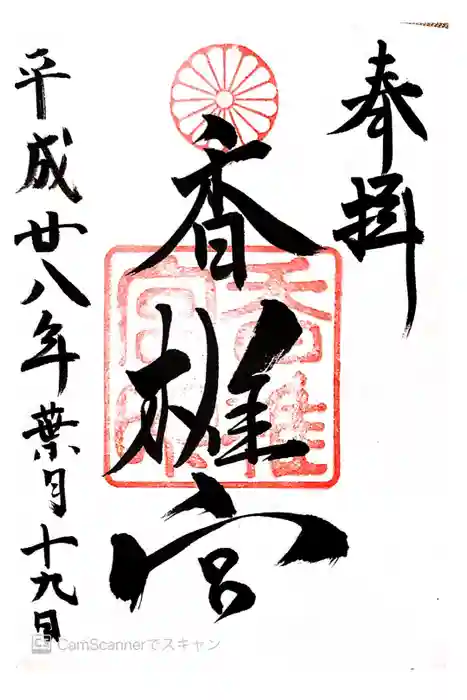 奉拝
香椎宮
平成廿八年葉月十九日
香椎宮印
CS CamScannerでスキャン